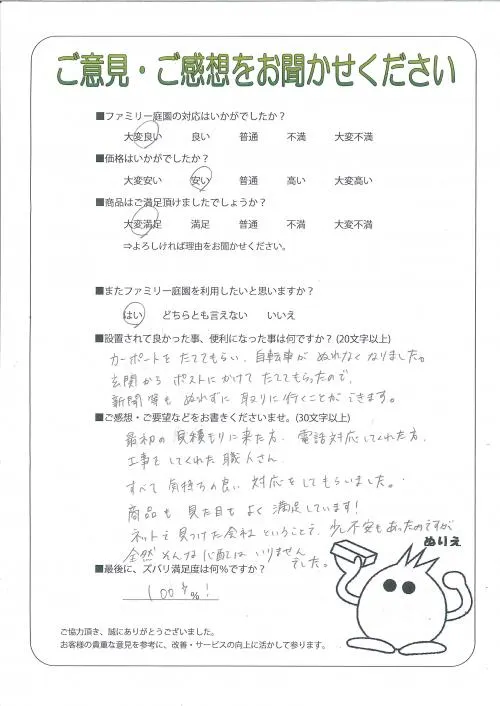 ご意見・ご感想をお聞かせください
■ファミリー庭園の対応はいかがでしたか?
大変良い 良い 普通 不満 大変不満
■価格はいかがでしたか?
大変安い 安い 普通 高い 大変高い
■商品はご満足頂けましたでしょうか?
大変満足 満足 普通 不満 大変不満
⇒よろしければ理由をお聞かせください。
■またファミリー庭園を利用したいと思いますか?
はい どちらとも言えない いいえ
■設置されて良かった事、便利になった事は何ですか? (20文字以上)
カーポートをたててもらい、自転車がぬれなくなりました。
玄関からポストにかけてたててもらったので、
新聞等もぬれずに取りに行くことができます。
■ご感想・ご要望などをお書きくださいませ。(30文字以上)
最初の見積もりに来た方、電話対応してくれた方、
工事をしてくれた職人さん、
すべて気持ちの良い対応をしてもらいました。
商品も見た目もよく満足しています!
ネットで見つけた会社ということで、少し不安もあったのですが
全然そんな心配はいりません
でした。
ぬりえ
■最後に、ズバリ満足度は何%ですか?
100%!
ご協力頂き、誠にありがとうございました。
お客様の貴重な意見を参考に、改善・サービスの向上に活かして参ります。